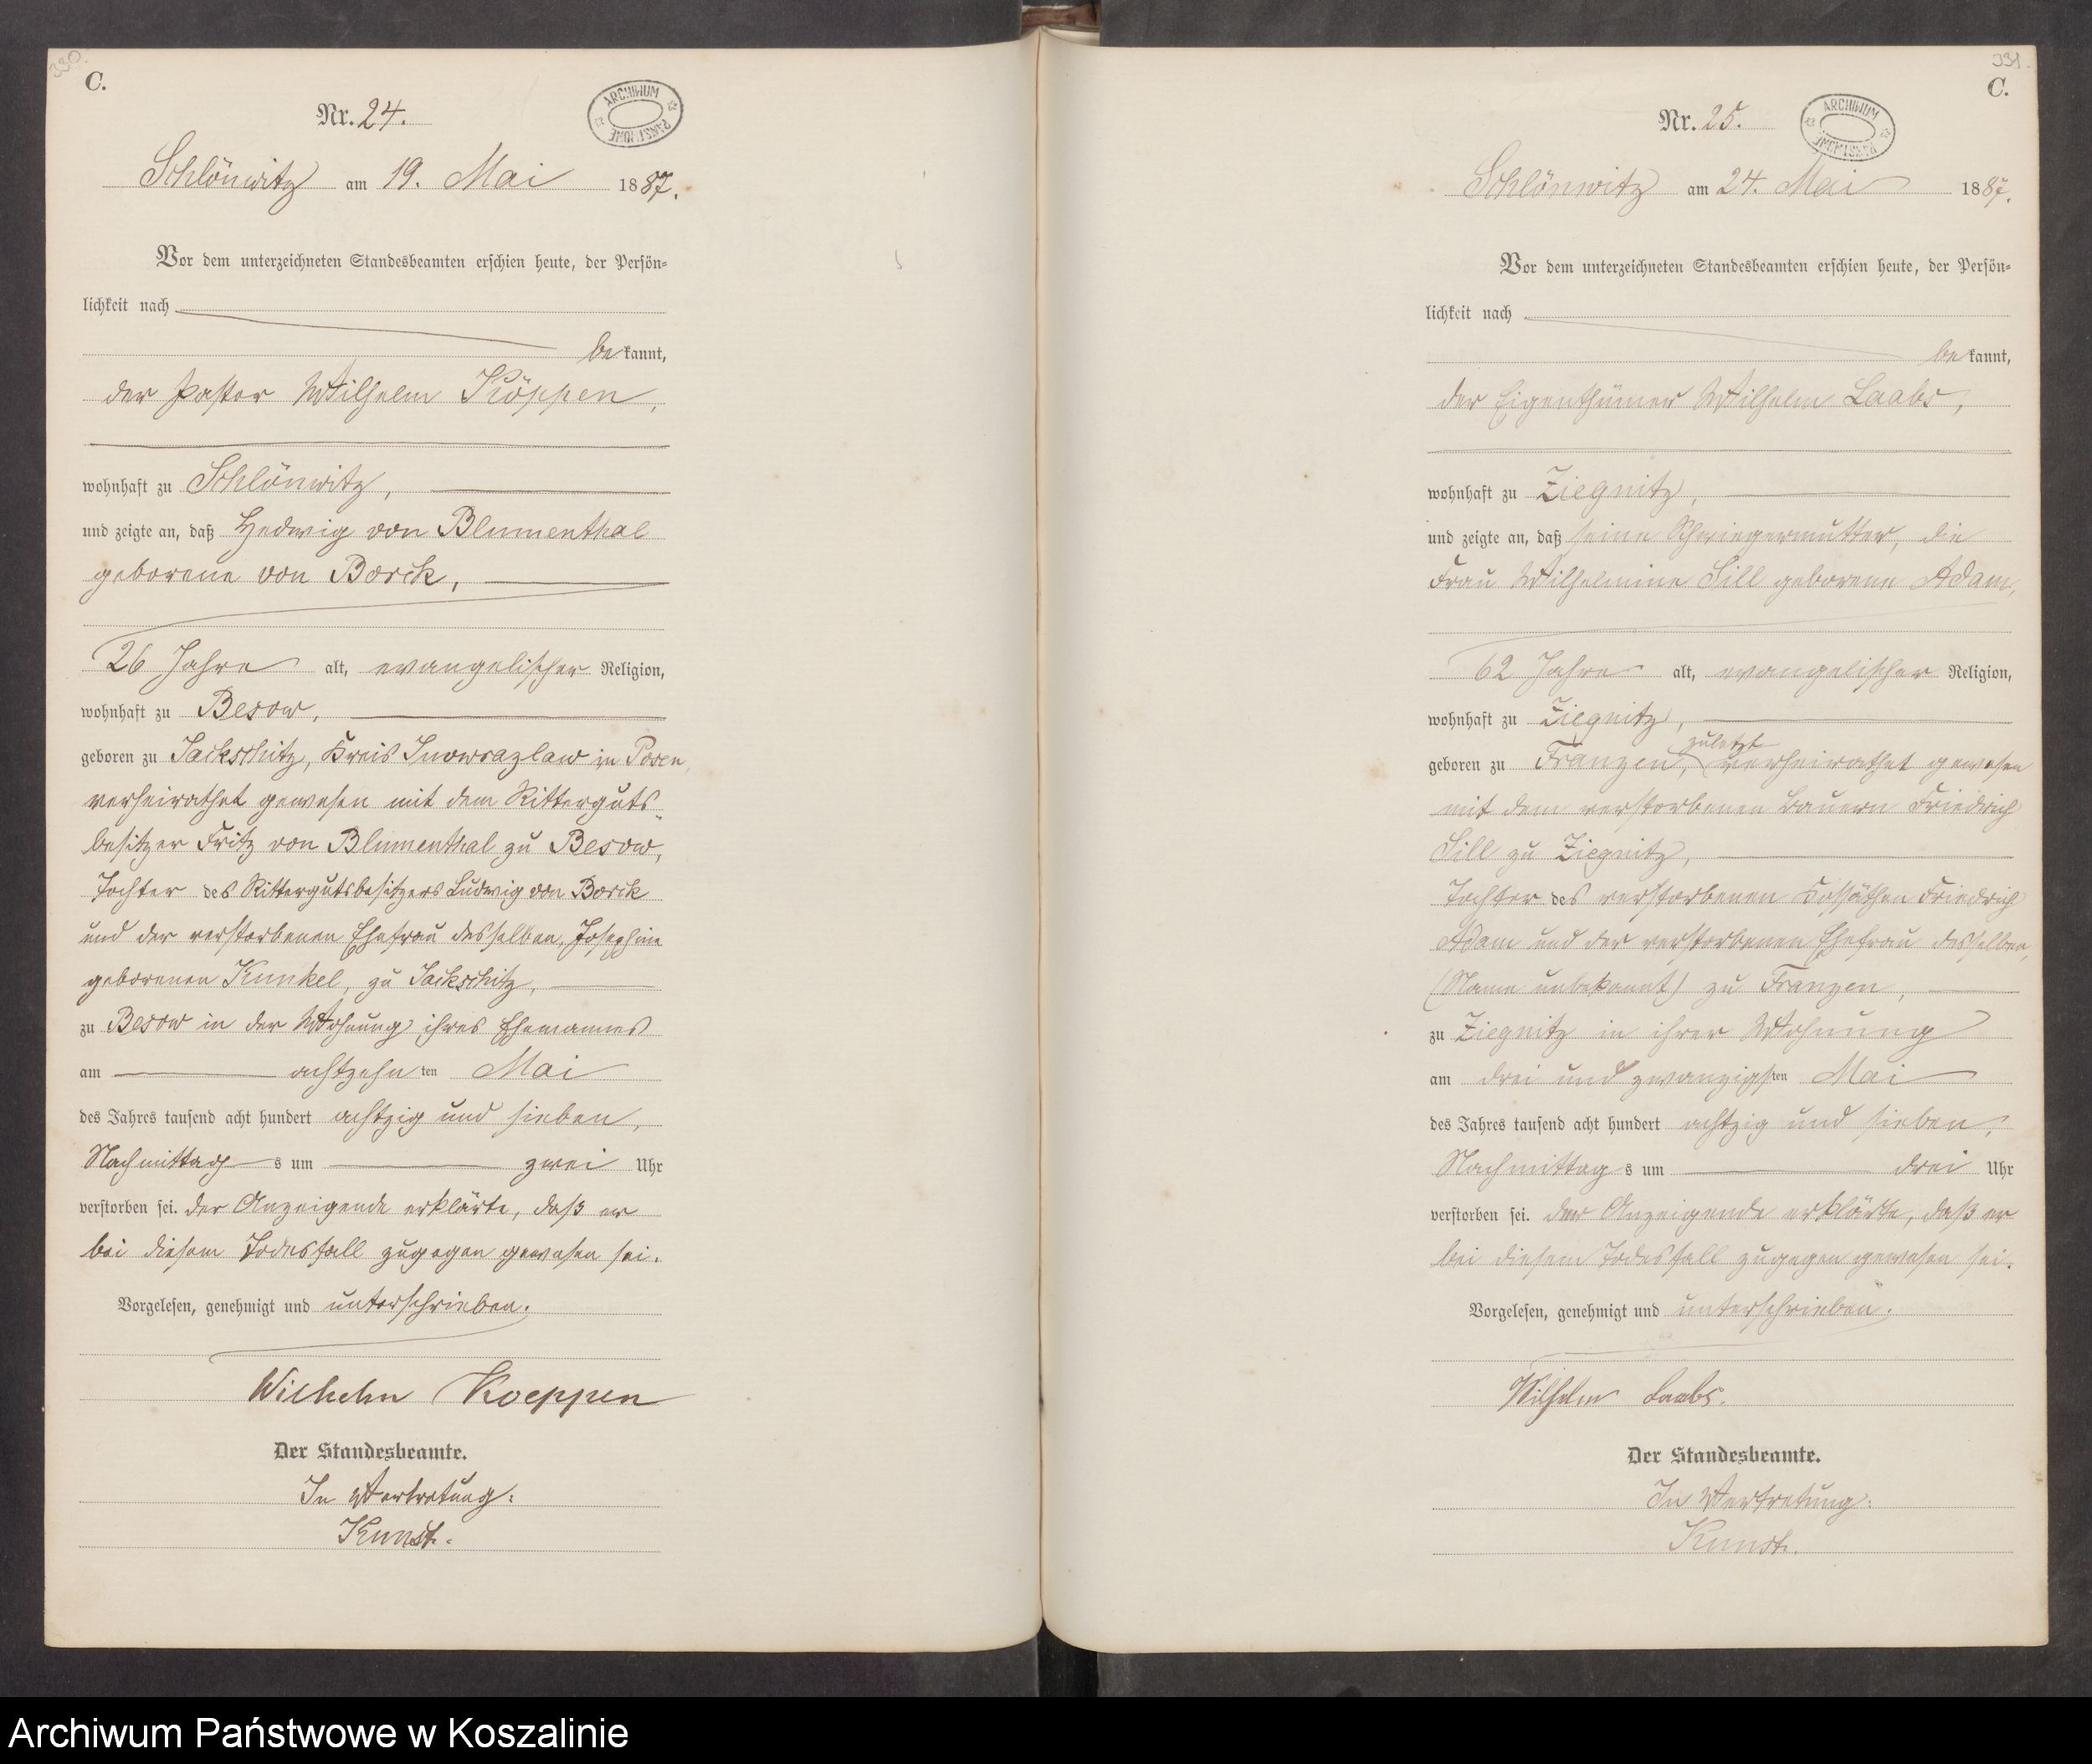 330.
C.
ARCHIWUM PAŃSTWOWE
Nr. 24.
Schlönwitz am 19. Mai 1887.
Vor dem unterzeichneten Standesbeamten erschien heute, der Persön-
lichkeit nach
bekannt,
der Pastor Wilhelm Köppen,
wohnhaft zu Schlönwitz,
und zeigte an, daß Hedwig von Blumenthal
geborene von Borck,
26 Jahre alt, evangelischer Religion,
wohnhaft zu Besow,
geboren zu Jackschitz, Kreis Inowrazlaw in Posen,
verheirathet gewesen mit dem Ritterguts-
besitzer Fritz von Blumenthal zu Besow,
Tochter des Rittergutsbesitzers Ludwig von Borck
und der verstorbenen Ehefrau desselben, Josephine
geborenen Kunkel, zu Jackschitz,
zu Besow in der Wohnung ihres Ehemannes
am achtzehnten Mai
des Jahres tausend acht hundert achtzig und sieben,
Nachmittags um zwei Uhr
verstorben sei. Der Anzeigende erklärte, daß er
bei diesem Todesfall zugegen gewesen sei.
Vorgelesen, genehmigt und unterschrieben.
Wilhelm Koeppen
Der Standesbeamte.
In Vertretung:
Kunst.
331.
C.
ARCHIWUM PAŃSTWOWE
Nr. 25.
Schlönwitz am 24. Mai 1887.
Vor dem unterzeichneten Standesbeamten erschien heute, der Persön-
lichkeit nach
bekannt,
der Eigenthümer Wilhelm Laabs,
wohnhaft zu Ziegnitz,
und zeigte an, daß seine Schwiegermutter, die
Frau Wilhelmine Sill geborene Adam,
62 Jahre alt, evangelischer Religion,
wohnhaft zu Ziegnitz,
zuletzt
geboren zu Franzen, verheirathet gewesen
mit dem verstorbenen Bauern Friedrich
Sill zu Ziegnitz,
Tochter des verstorbenen Kossäthen Friedrich
Adam und der verstorbenen Ehefrau desselben,
(Name unbekannt) zu Franzen,
zu Ziegnitz in ihrer Wohnung
am drei und zwanzigsten Mai
des Jahres tausend acht hundert achtzig und sieben,
Nachmittags um drei Uhr
verstorben sei. Der Anzeigende erklärte, daß er
bei diesem Todesfall zugegen gewesen sei.
Vorgelesen, genehmigt und unterschrieben.
Wilhelm Laabs.
Der Standesbeamte.
In Vertretung:
Kunst.
Archiwum Państwowe w Koszalinie